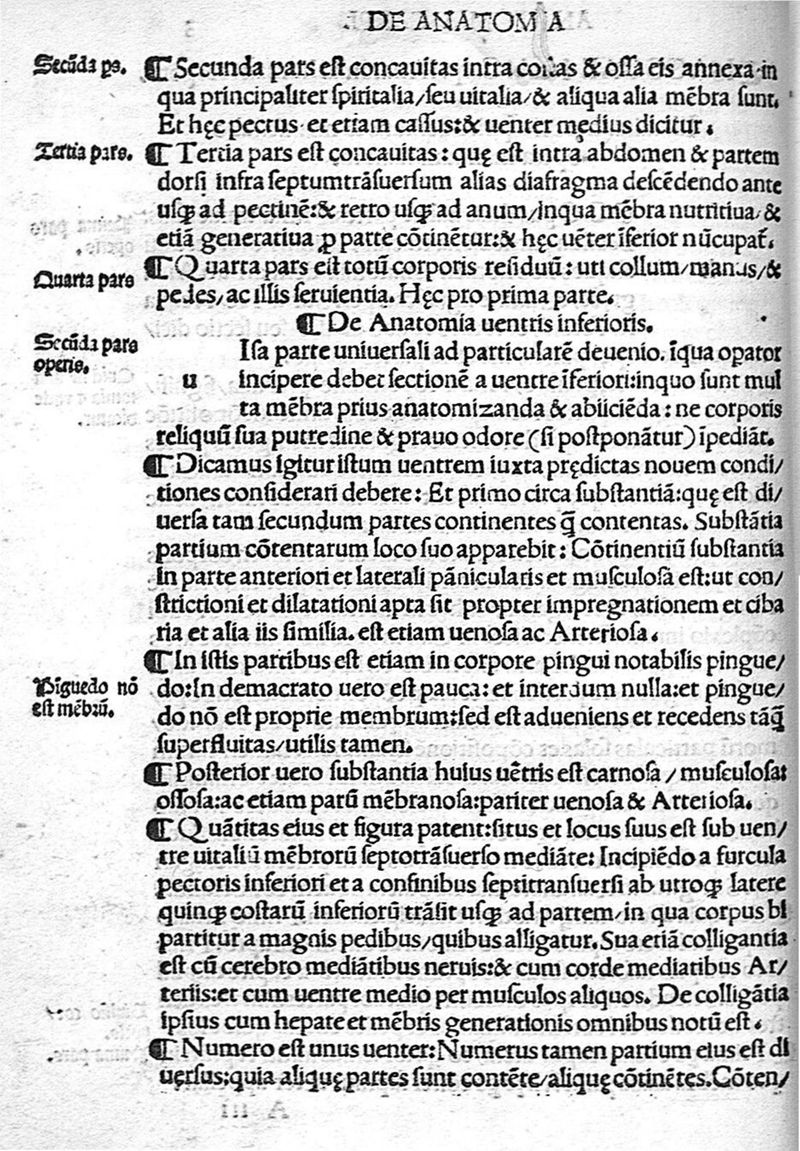 DE ANATOMIA
Secūda ps.
¶ Secunda pars est concauitas intra costas & ossa eis annexa in
qua principaliter spiritalia/seu uitalia/& aliqua alia mēbra sunt.
Et hęc pectus et etiam cassus:& uenter medius dicitur.
Tertia pars.
¶ Tertia pars est concauitas: quę est intra abdomen & partem
dorsi infra septumtrāsuersum alias diafragma descēdendo ante
usqꝫ ad pectinē:& retro usqꝫ ad anum/inqua mēbra nutritiua/&
etiā generatiua ꝑ parte cōtinētur:& hęc uēter īferior nūcupat᷑.
Quarta pars
¶ Quarta pars est totū corporis residuū: uti collum/manus/&
pedes/ac illis seruientia. Hęc pro prima parte.
¶ De Anatomia uentris inferioris.
Secūda pars
operis.
Isa parte uniuersali ad particularē deuenio. īqua opator
u incipere debet sectionē a uentre īferiori:inquo sunt mul
ta mēbra prius anatomizanda & abiiciēda: ne corporis
reliquū sua putredine & prauo odore (si postponātur) īpediāt.
¶ Dicamus igitur istum uentrem iuxta prędictas nouem condi/
tiones considerari debere: Et primo circa substantiā:quę est di/
uersa tam secundum partes continentes q̄ contentas. Substātia
partium cōtentarum loco suo apparebit: Cōtinentiū substantia
in parte anteriori et laterali pānicularis et musculosa est:ut con/
strictioni et dilatationi apta sit propter impregnationem et ciba
ria et alia iis similia. est etiam uenosa ac Arteriosa.
¶ In istis partibus est etiam in corpore pingui notabilis pingue/
Pīguedo nō
est mēbrū.
do:In demacrato uero est pauca: et interdum nulla:et pingue/
do nō est proprie membrum:sed est adueniens et recedens tāq̄
superfluitas/utilis tamen.
¶ Posterior uero substantia huius uētris est carnosa / musculosa:
ossosa:ac etiam parū mēbranosa:pariter uenosa & Arteriosa.
¶ Quātitas eius et figura patent:situs et locus suus est sub uen/
tre uitaliū mēbrorū septotrāsuerso mediāte: Incipiēdo a furcula
pectoris inferiori et a confinibus septitransuersi ab utroqꝫ latere
quinqꝫ costarū inferiorū trāsit usqꝫ ad partem/in qua corpus bi
partitur a magnis pedibus/quibus alligatur. Sua etiā colligantia
est cū cerebro mediātibus neruis:& cum corde mediatibus Ar/
teriis:et cum uentre medio per musculos aliquos. De colligātia
ipsius cum hepate et mēbris generationis omnibus notū est.
¶ Numero est unus uenter:Numerus tamen partium eius est di
uęrsus:quia aliquę partes sunt contēte/aliquę cōtinētes.Cōten/
A iii